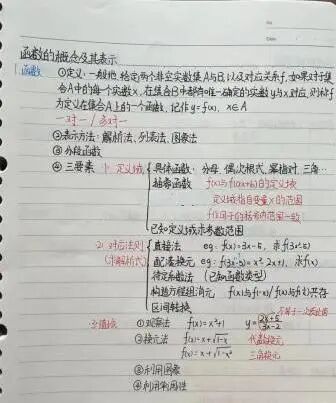 函数的概念及其表示
1.函数 ①定义:一般地,给定两个非空实数集A与B,以及对应关系f,如果对于集
合A中的每一个实数x,在集合B中都有唯一确定的实数y与x对应,则称f
为定义在集合A上的一个函数,记作y=f(x), x∈A
一对一/多对一
②表示方法:解析法、列表法、图象法
③分段函数
④三要素 1) 定义域 具体函数:分母、偶次根式、零指对、三角…
抽象函数 f(x)与f(ax+b)的定义域
定义域指自变量x的范围
f作用于的括号内范围一致
已知定义域求参数范围
2) 对应法则 直接法 eg: f(x)=3x-5, 求f(3x²-5)
(求解析式) 配凑换元 eg: f(3x-5)=x²-2x+1, 求f(x)
待定系数法 (已知函数类型)
构造方程组消元 f(x)与f(-x)/f(x)与f(1/x)共存
区间转换
3) 值域 ①观察法 f(x)=x²+1
②换元法 f(x)=x+√1-x 代数换元
f(x)=x+√1-x² 三角换元
③利用图象
④利用单调性